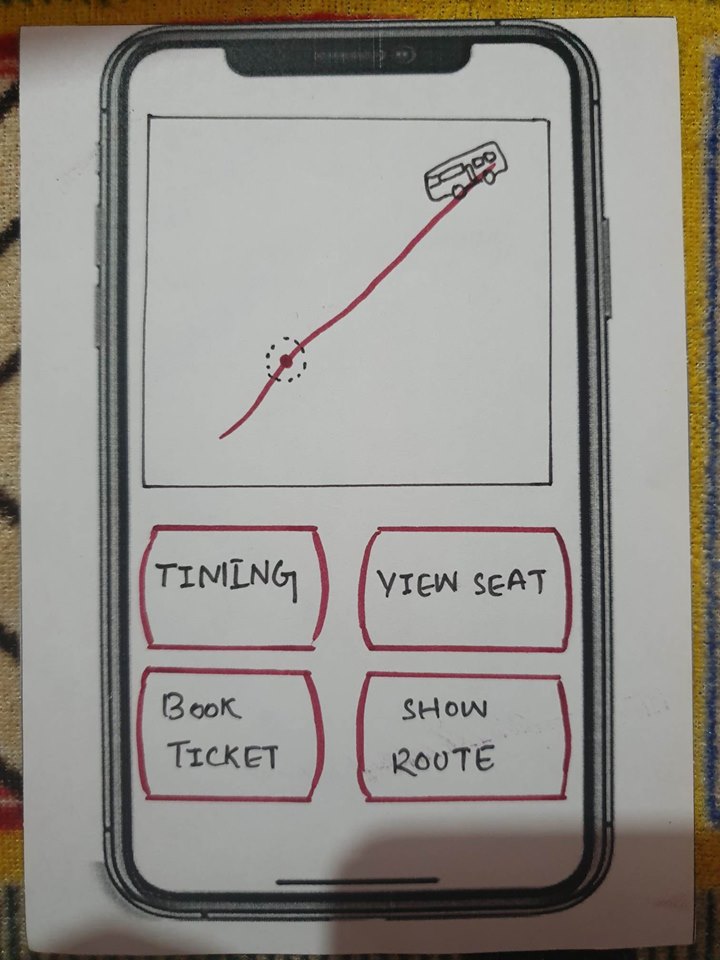 TIMING
VIEW SEAT
BOOK
TICKET
SHOW
ROUTE